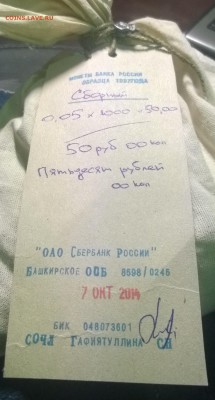 COINS.LAVE.RU
МОНЕТЫ БАНКА РОССИИ
ОБРАЗЦА 1997ГОДА
Сборный
0,05 x 1000 = 50,00
50 руб 00 коп
Пятьдесят рублей
00 коп
"ОАО СБЕРБАНК РОССИИ"
БАШКИРСКОЕ ОСБ 8598/0246
7 ОКТ 2014
БИК 048073601
ГАФИЯТУЛЛИНА